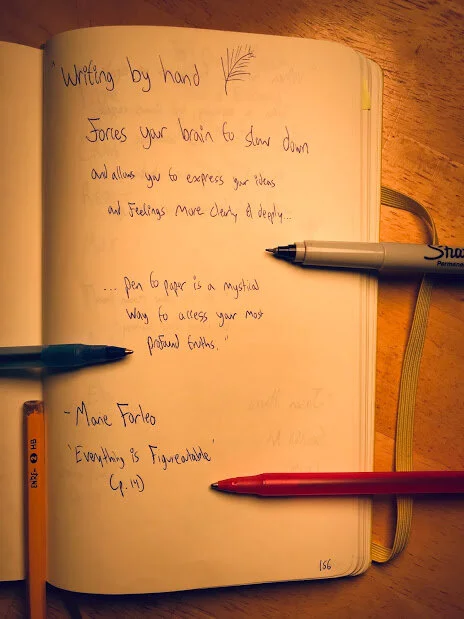 "Writing by hand
Forces your brain to slow down
and allows you to express your ideas
and feelings more clearly & deeply...
... pen to paper is a mystical
way to access your most
profound truths."
- Marie Forleo
'Everything is Figureoutable'
(p. 14)
156
Sha
Permane
HB 2